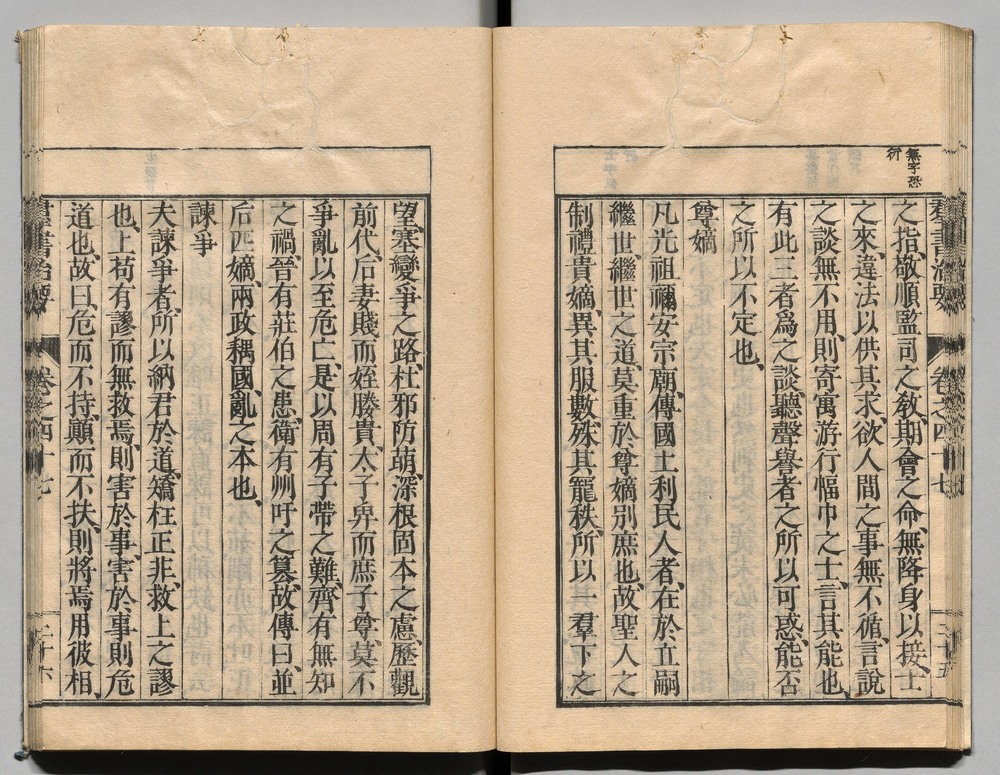 無字恐
衍
羣書治要 卷之四十七 三十五
之指、敬順監司之敎、期會之命、無降身以接、士
之來、違法以供其求、欲人間之事無不循、言說
之談無不用、則寄寓游行幅巾之士、言其能也、
有此三者爲之談、聽聲譽者之所以可惑、能否
之所以不定也、
尊嫡
凡先祖禰、安宗廟、傳國土、利民人者、在於立嗣
繼世、繼世之道、莫重於尊嫡別庶也、故聖人之
制禮貴嫡、異其服數、殊其寵秩、所以一羣下之
望、塞變爭之路、杜邪防萌、深根固本之慮、歷觀
前代、后妻賤而姪媵貴、太子卑而庶子尊、莫不
爭亂以至危亡、是以周有子帶之難、齊有無知
之禍、晉有莊伯之患、衞有州吁之篡、故傳曰、並
后匹嫡、兩政耦國、亂之本也、
諫爭
夫諫爭者、所以納君於道、矯枉正非、救上之謬
也、上苟有謬而無救焉、則害於事、害於事、則危
道也、故曰、危而不持、顚而不扶、則將焉用彼相、
羣書治要 卷之四十七 三十六